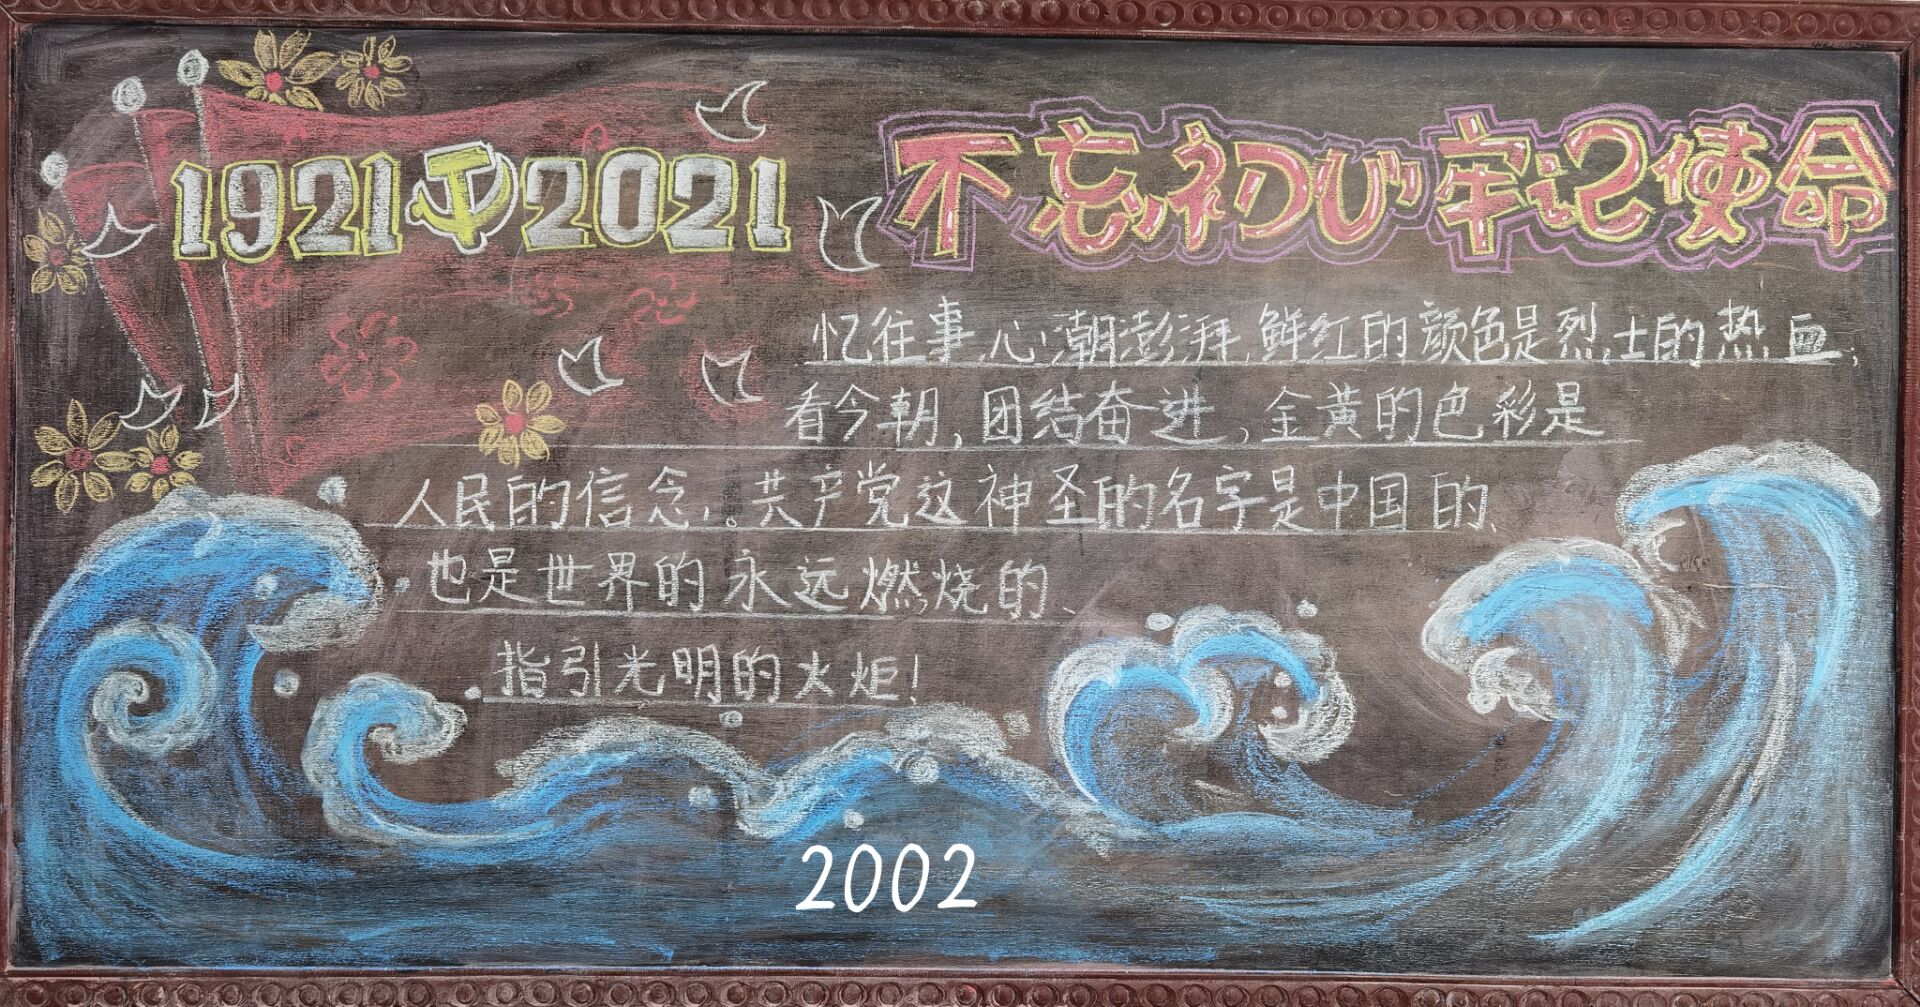 1921 2021
不忘初心 牢记使命
忆往事,心潮澎湃,鲜红的颜色是烈士的热血;
看今朝,团结奋进,金黄的色彩是
人民的信念,。共产党这神圣的名字是中国的、
也是世界的永远燃烧的、
指引光明的火炬!
2002